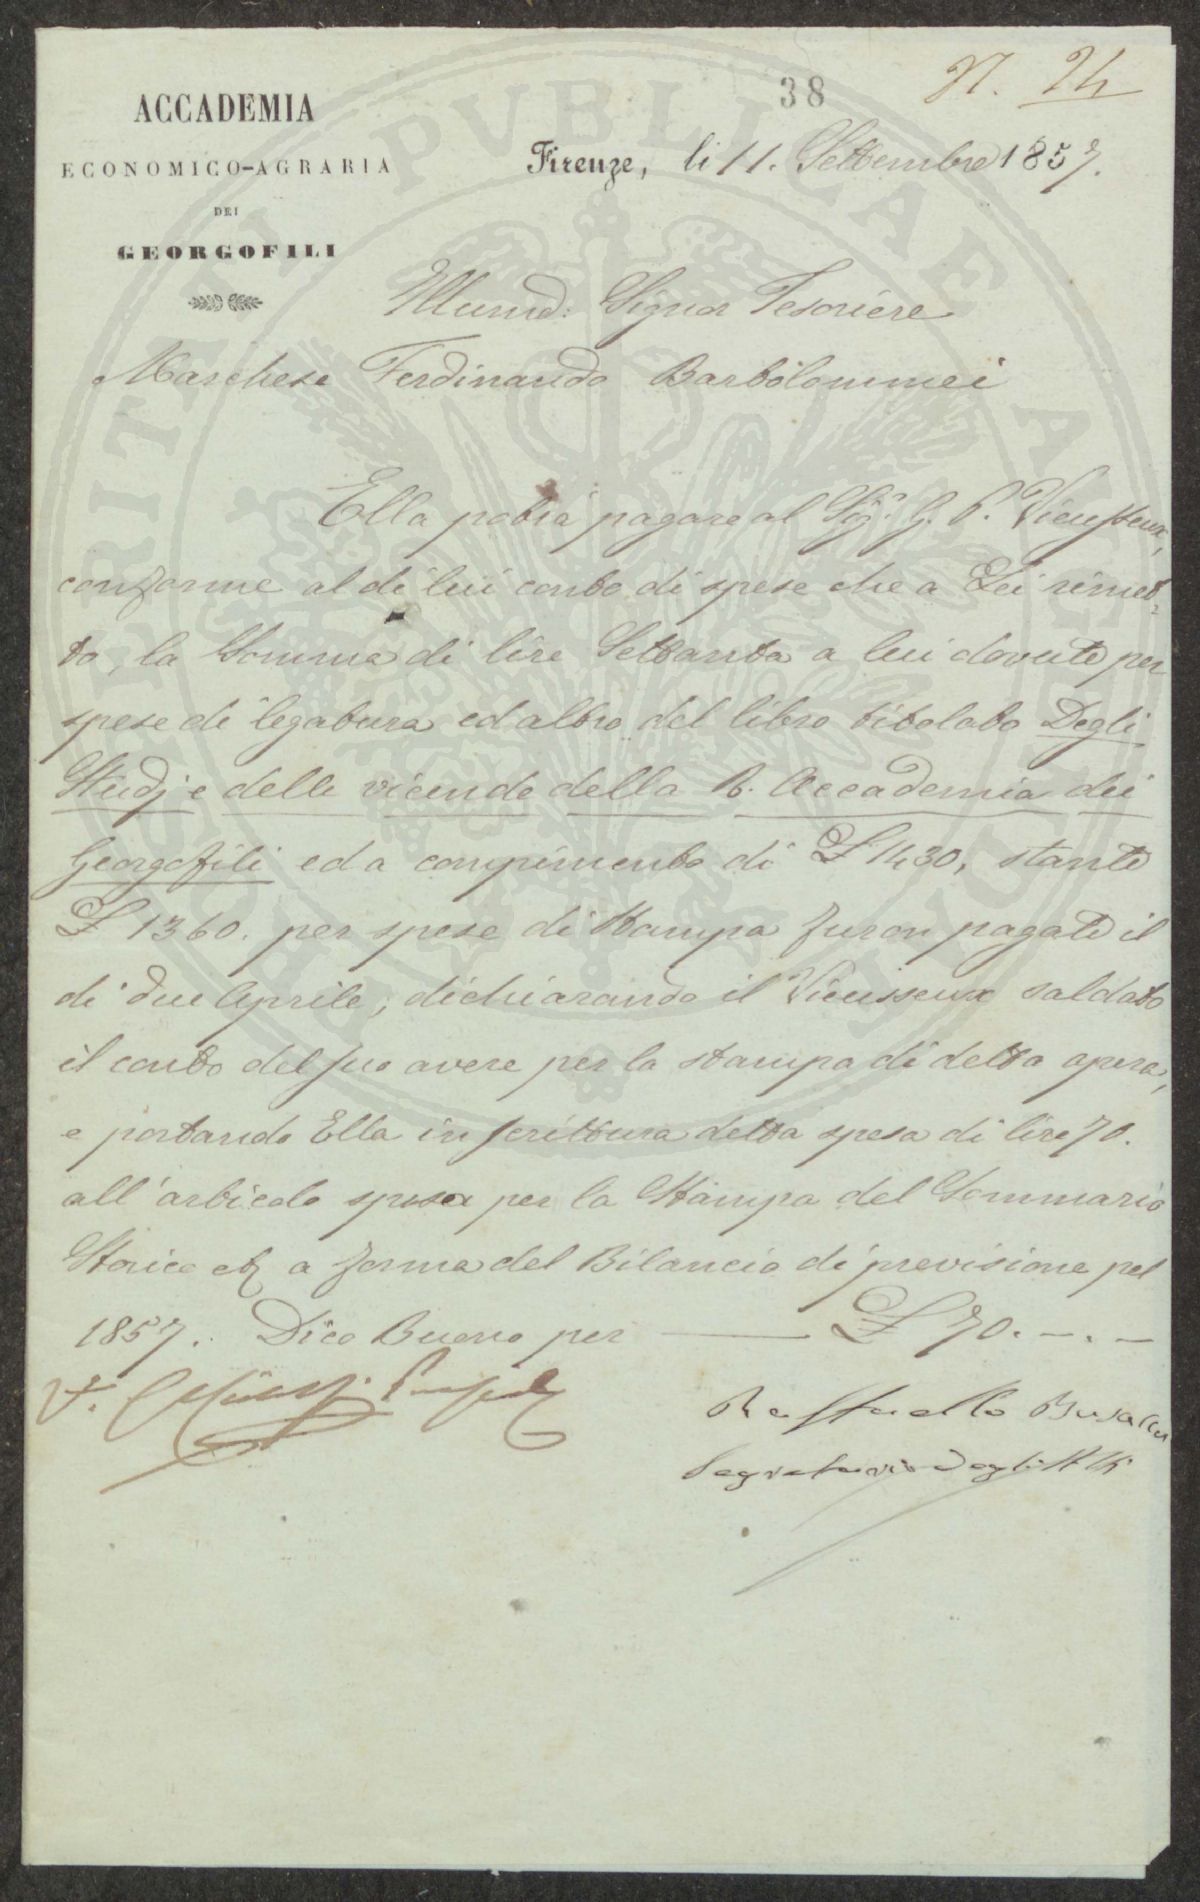 38
N. 24
ACCADEMIA
ECONOMICO-AGRARIA
DEI
GEORGOFILI
Firenze, li 11. Settembre 1857.
Illumo: Signor Tesoriere
Marchese Ferdinando Bartolommei
Ella potrà pagare al Sigr. G. P. Vieusseux,
conforme al di lui conto di spese che a Lei rimet-
to, la Somma di lire Settanta a lui dovute per
spese di legatura ed altro del libro titolato Degli
Studj e delle vicende della R. Accademia dei
Georgofili ed a compimento di £ 1430, stante
£ 1360. per spese di Stampa furon pagate il
di due Aprile, dichiarando il Vieusseux saldato
il conto del suo avere per la stampa di detta opera,
e portando Ella in scrittura detta spesa di lire 70.
all'articolo spesa per la Stampa del Sommario
Storico etc a forma del Bilancio di previsione pel
1857. Dico Buono per — £ 70. —. —
V.
Raffaello Busacca
Segretario degli Atti